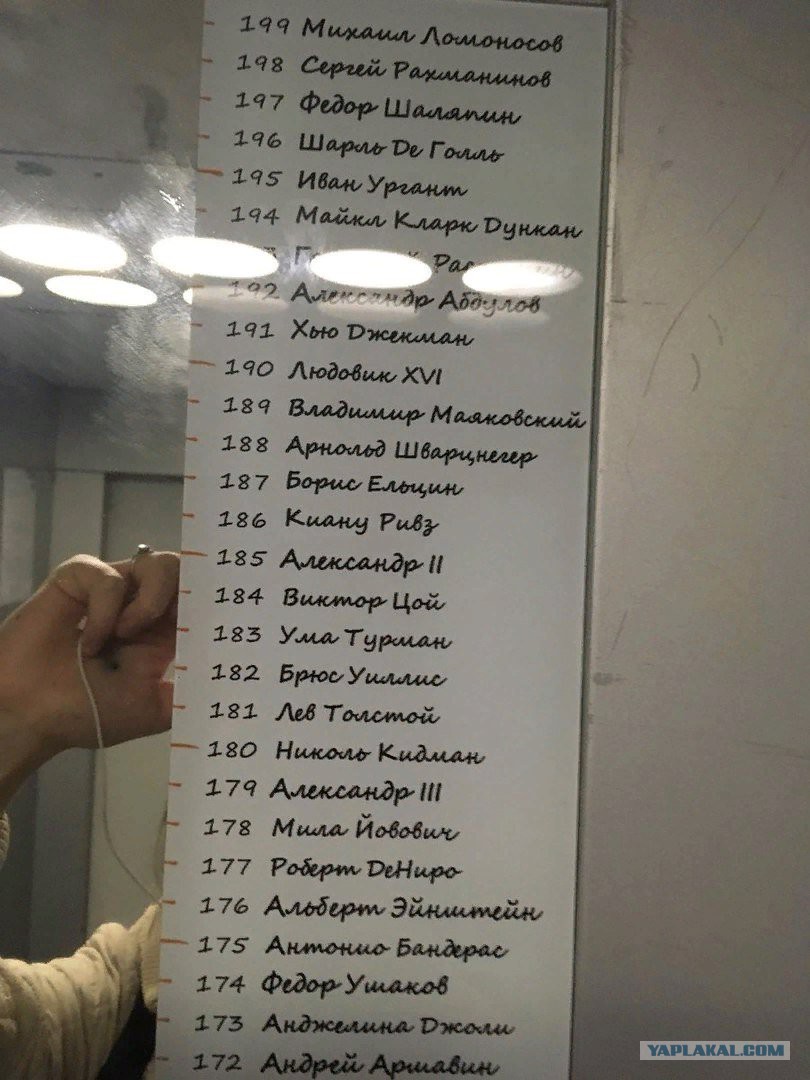 199 Михаил Ломоносов
198 Сергей Рахманинов
197 Федор Шаляпин
196 Шарль De Голль
195 Иван Ургант
194 Майкл Кларк Dункан
192 Александр Абдулов
191 Хью Dжекман
190 Людовик XVI
189 Владимир Маяковский
188 Арнольд Шварцнегер
187 Борис Ельцин
186 Киану Ривз
185 Александр II
184 Виктор Цой
183 Ума Турман
182 Брюс Уиллис
181 Лев Толстой
180 Николь Кидман
179 Александр III
178 Мила Йовович
177 Роберт DeНиро
176 Альберт Эйнштейн
175 Антонио Бандерас
174 Федор Ушаков
173 Анджелина Dжоли
172 Андрей Аршавин
YAPLAKAL.COM